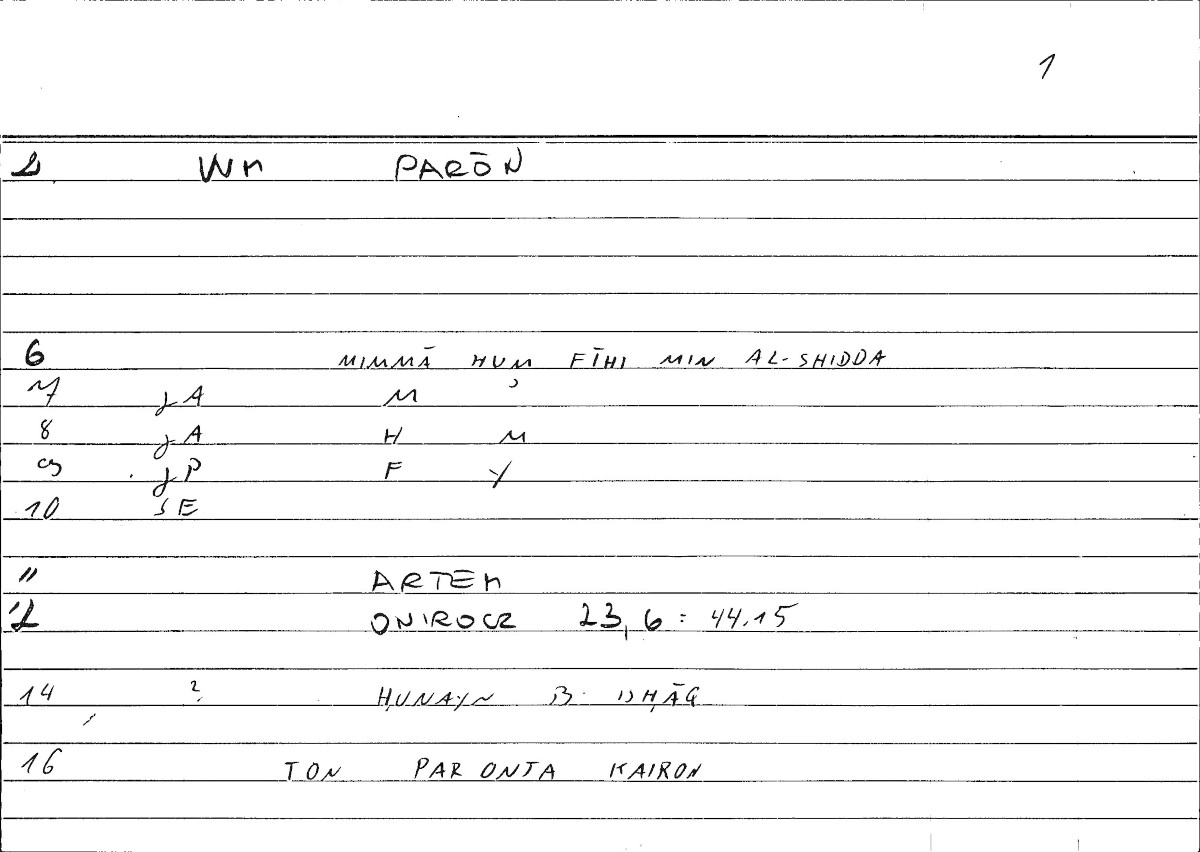 1
2 WM PARŌN
6 MIMMĀ HUM FĪHI MIN AL-SHIDDA
7 JA M
8 JA H M
9 JP F Y
10 SE
11 ARTEM
12 ONIROCR 23,6 : 44.15
14 ? ḤUNAYN B. ISḤĀQ
16 TON PARONTA KAIRON